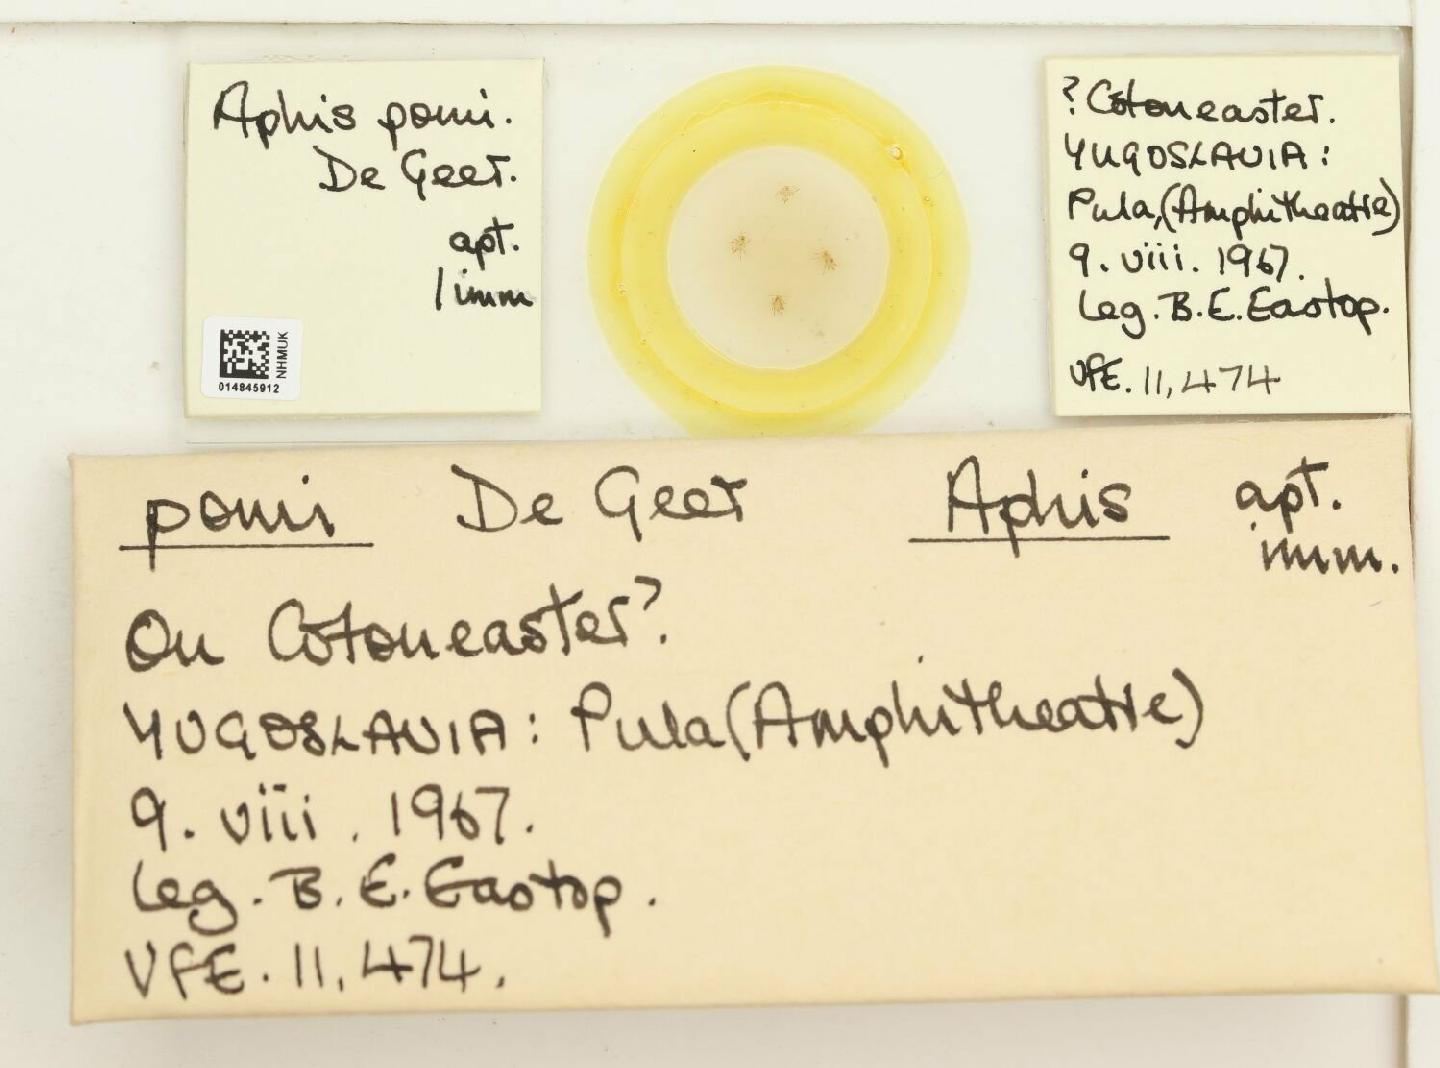 Aphis pomi.
De Geer.
apt.
1 imm
NHMUK
014845912
? Cotoneaster.
YUGOSLAVIA:
Pula, (Amphitheatre)
9. viii. 1967.
Leg. B. E. Eastop.
VFE. 11,474
pomi De Geer Aphis apt.
imm.
On Cotoneaster?
YUGOSLAVIA: Pula (Amphitheatre)
9. viii. 1967.
Leg. B. E. Eastop.
VFE. 11,474.